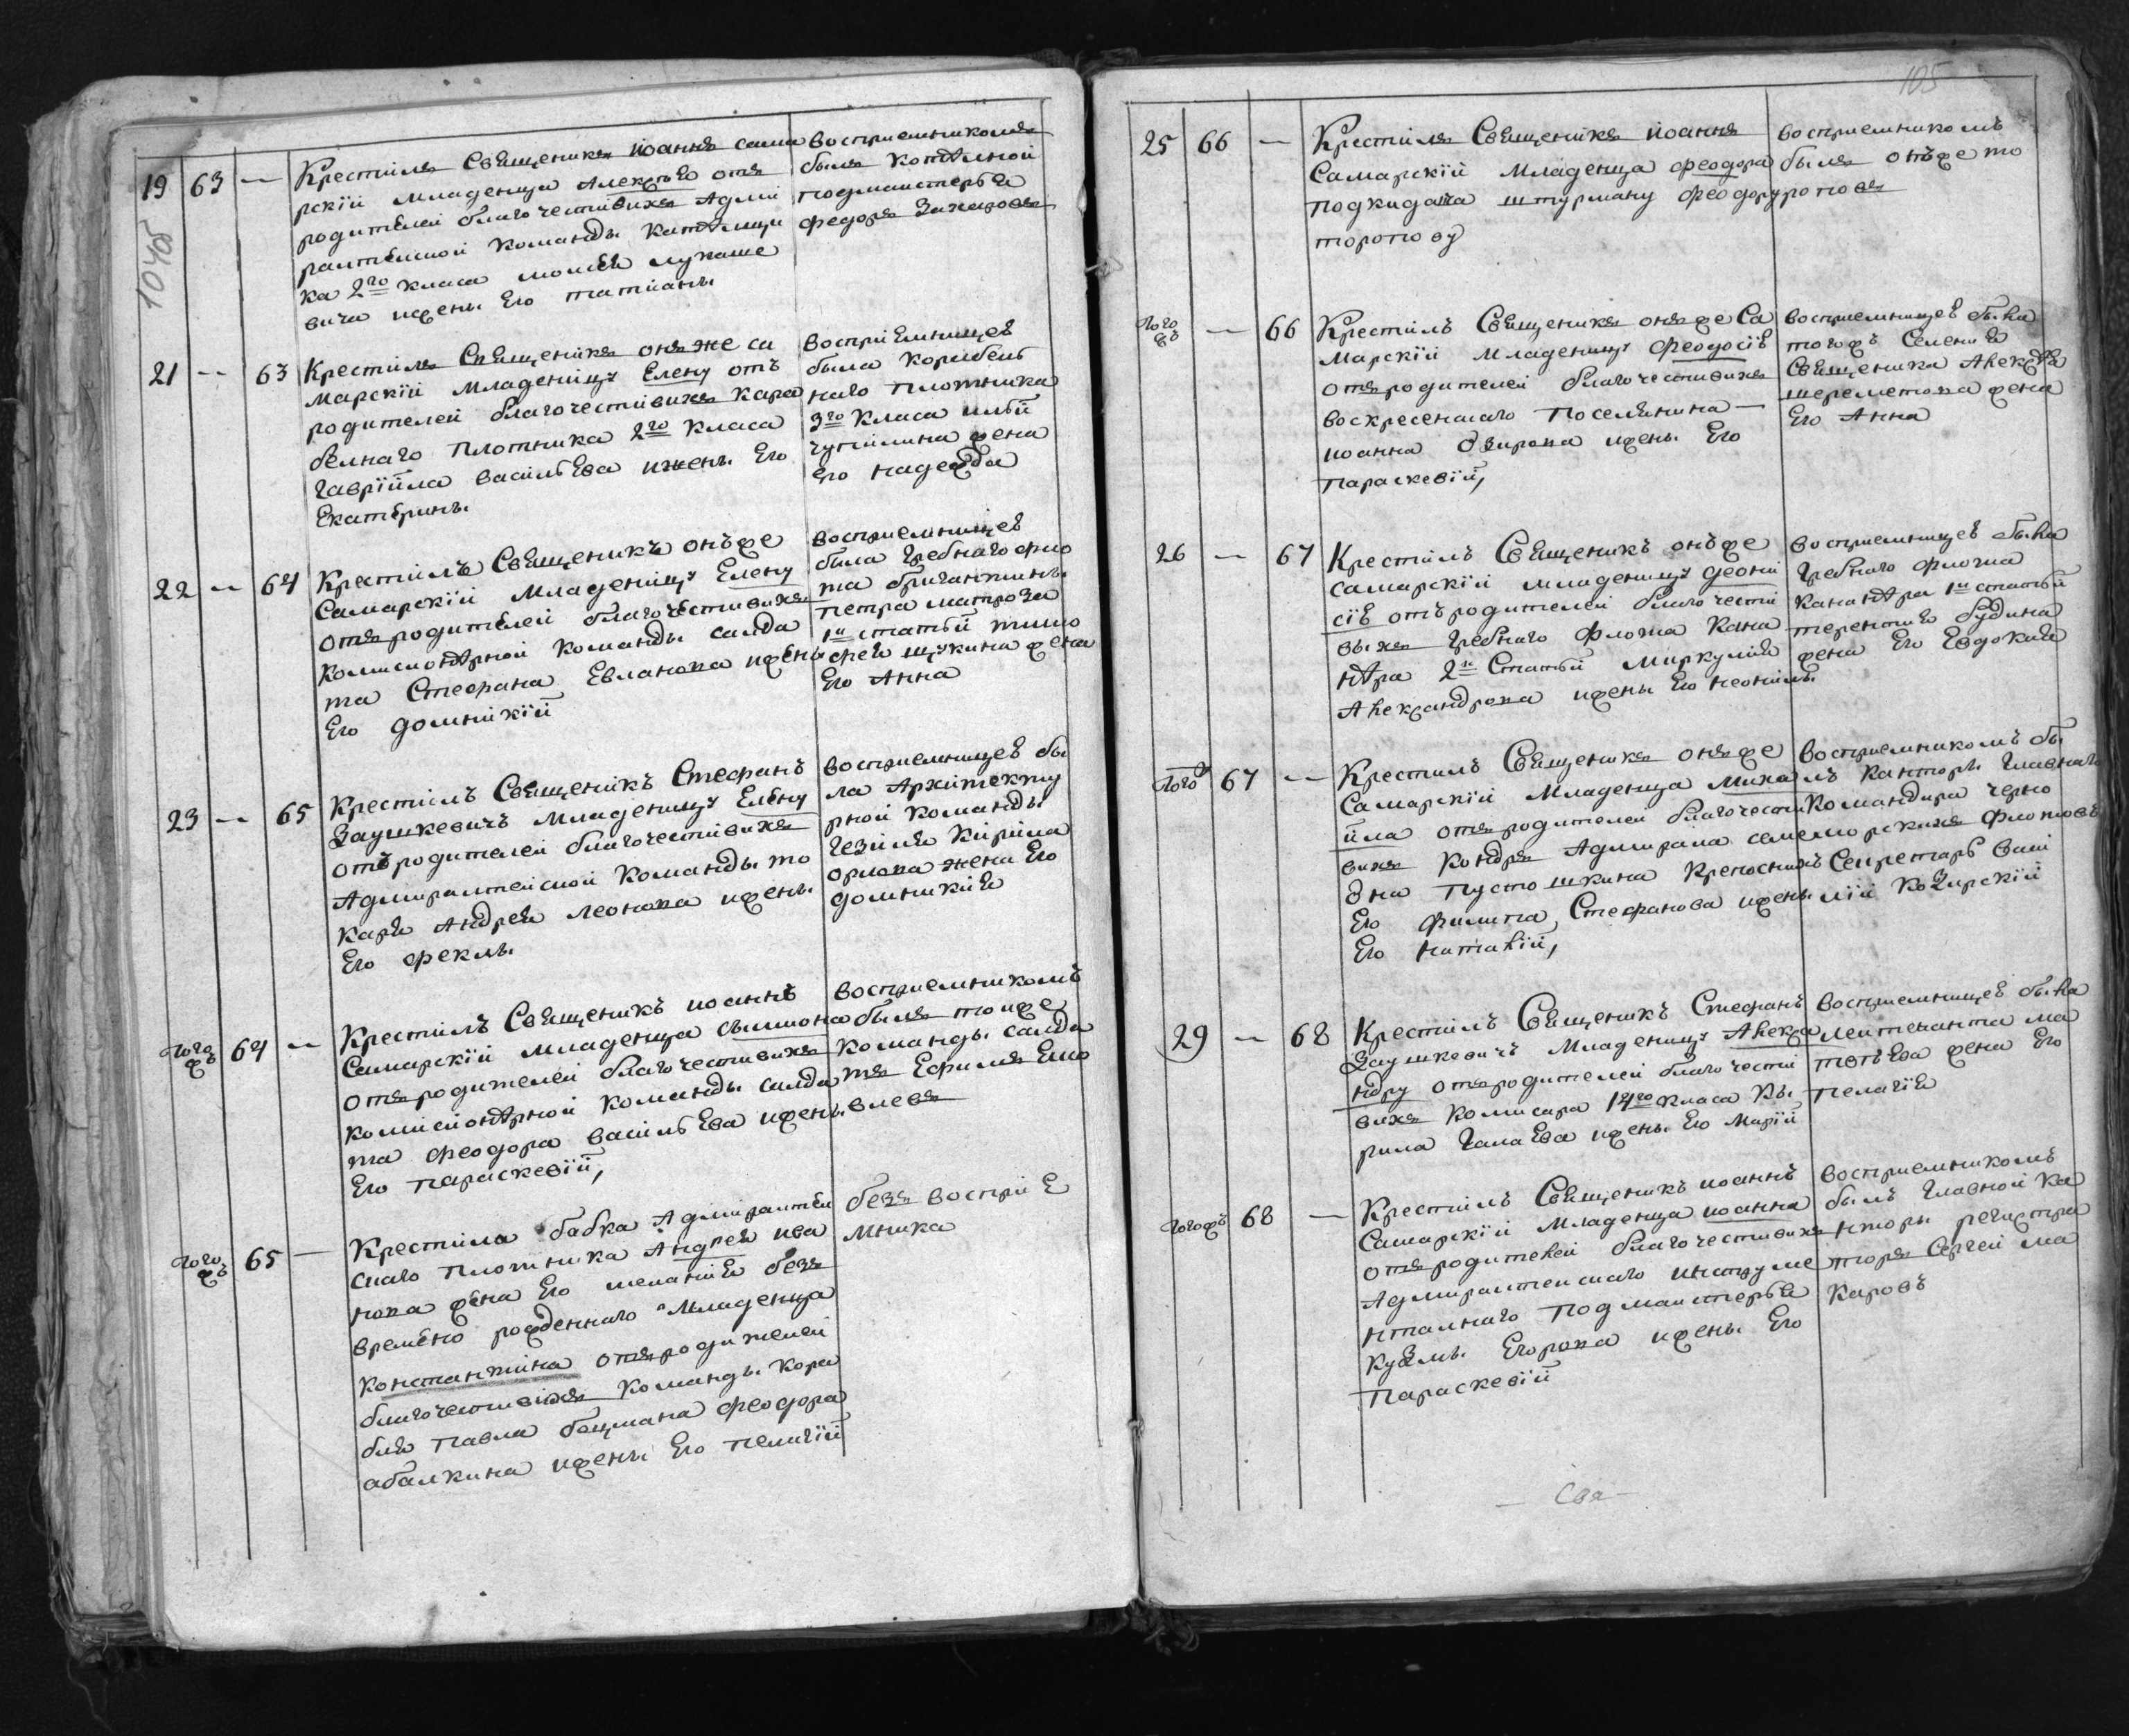 104об
19 63 — Крестилъ Священикъ иоаннъ сама
рскїй младенца Алексѣя отъ
родителей благочестивихъ Адми
ралтейской команды
ка 2го класа моисея лукаше
вича ижены Его татианы
восприемникомъ
былъ котелной
подмастерья
федоръ Захаровъ
21 — 63 Крестилъ Священикъ онъ же са
марскїй младеницу Елену отъ
родителей благочестивихъ кара
белнаго плотника 2го класа
гаврїила васильЕва ижены Его
Екатерины
воспрїемницеѣ
была корабель
наго плотника
3го класа ильи
жена
Его надежда
22 — 64 Крестилъ Священикъ онъже
Самарскїй младеницу Елену
отъ родителей благочестивихъ
комисионѣрной команды салда
та Стефана Евланова ижены
Его домникїй
восприемницеѣ
была гребнаго фло
та бригантины
петра матроза
1й статьи тимо
фея щукина жена
Его Анна
23 — 65 Крестилъ Священикъ Стефанъ
Заушкевичъ младеницу Елену
отъ родителей благочестивихъ
Адмиралтейской команды то
каря Андрея леонова ижены
Его феклы
восприемницеѣ бы
ла Архитекту
рной команды
гезиля кирила
орлова жена Его
домникия
тогожъ 64 — Крестилъ Священикъ иоаннъ
Самарскїй младенца сымиона
отъ родителей благочестивихъ
комисионѣрной команды салда
та феодора васильЕва ижены
Его параскевїй,
восприемникомъ
былъ тоиже
команды салда
тъ Ефимъ
тогожъ 65 — Крестила бабка Адмиралтей
скаго плотника Андрея ива
нова жена Его меланиия безъ
времено рожденнаго младенца
константина отъ родителей
благочестивихъ команды кора
бля павла боцмана феодора
абалкина ижены Его пелагїй
безъ воспрїЕ
мника
105
25 66 — Крестилъ Священикъ иоаннъ
Самарскїй младенца феодора
подкидача штурману феодору
торопову
восприемникомъ
былъ онъже то
роповъ
тогожъ — 66 Крестилъ Священикъ онъже Са
марскїй младеницу феодосїѣ
отъ родителей благочестивихъ
воскресенскаго поселянина —
иоанна Озирова ижены Его
параскевїй,
восприемницеѣ была
тогожъ Селения
Священика Алексѣя
шереметова жена
Его Анна
26 — 67 Крестилъ Священикъ онъже
самарскїй младеницу деони
сїѣ отъ родителей благочести
выхъ гребнаго флота кана
нѣра 2й Статьи Меркулия
Александрова ижены Его неонилы
восприемницеѣ была
гребнаго флота
канонѣра 1й статьи
терентия будина
жена Его Евдокия
тогож 67 — Крестилъ Священикъ онъже
Самарскїй младенца михаи
ила отъ родителей благочести
вихъ контръ Адмирала семе
Она пустошкина крепостнихъ
Его филипа Стефанова ижены
Его наталїй,
восприемникомъ бы
лъ канторы главнаго
командира черно
морскихъ флотовъ
Секретарь васи
лїй козирскїй
29 — 68 Крестилъ Священикъ Стефанъ
Заушкевичъ младеницу Алекса
ндру отъ родителей благочести
вихъ комисара 14го класа кы
рила галаЕва ижены Его марїй
восприемницеѣ была
леитенанта ма
жена Его
пелагїя
тогожъ 68 — Крестилъ Священикъ иоаннъ
Самарскїй младенца иоанна
отъ родителей благочестивихъ
Адмиралтейскаго инструме
нталнаго подмастерья
кузмы Егорова ижены Его
параскевїй
восприемникомъ
былъ главной ка
нторы регистра
торъ Сергей ма
каровъ
— Свя —